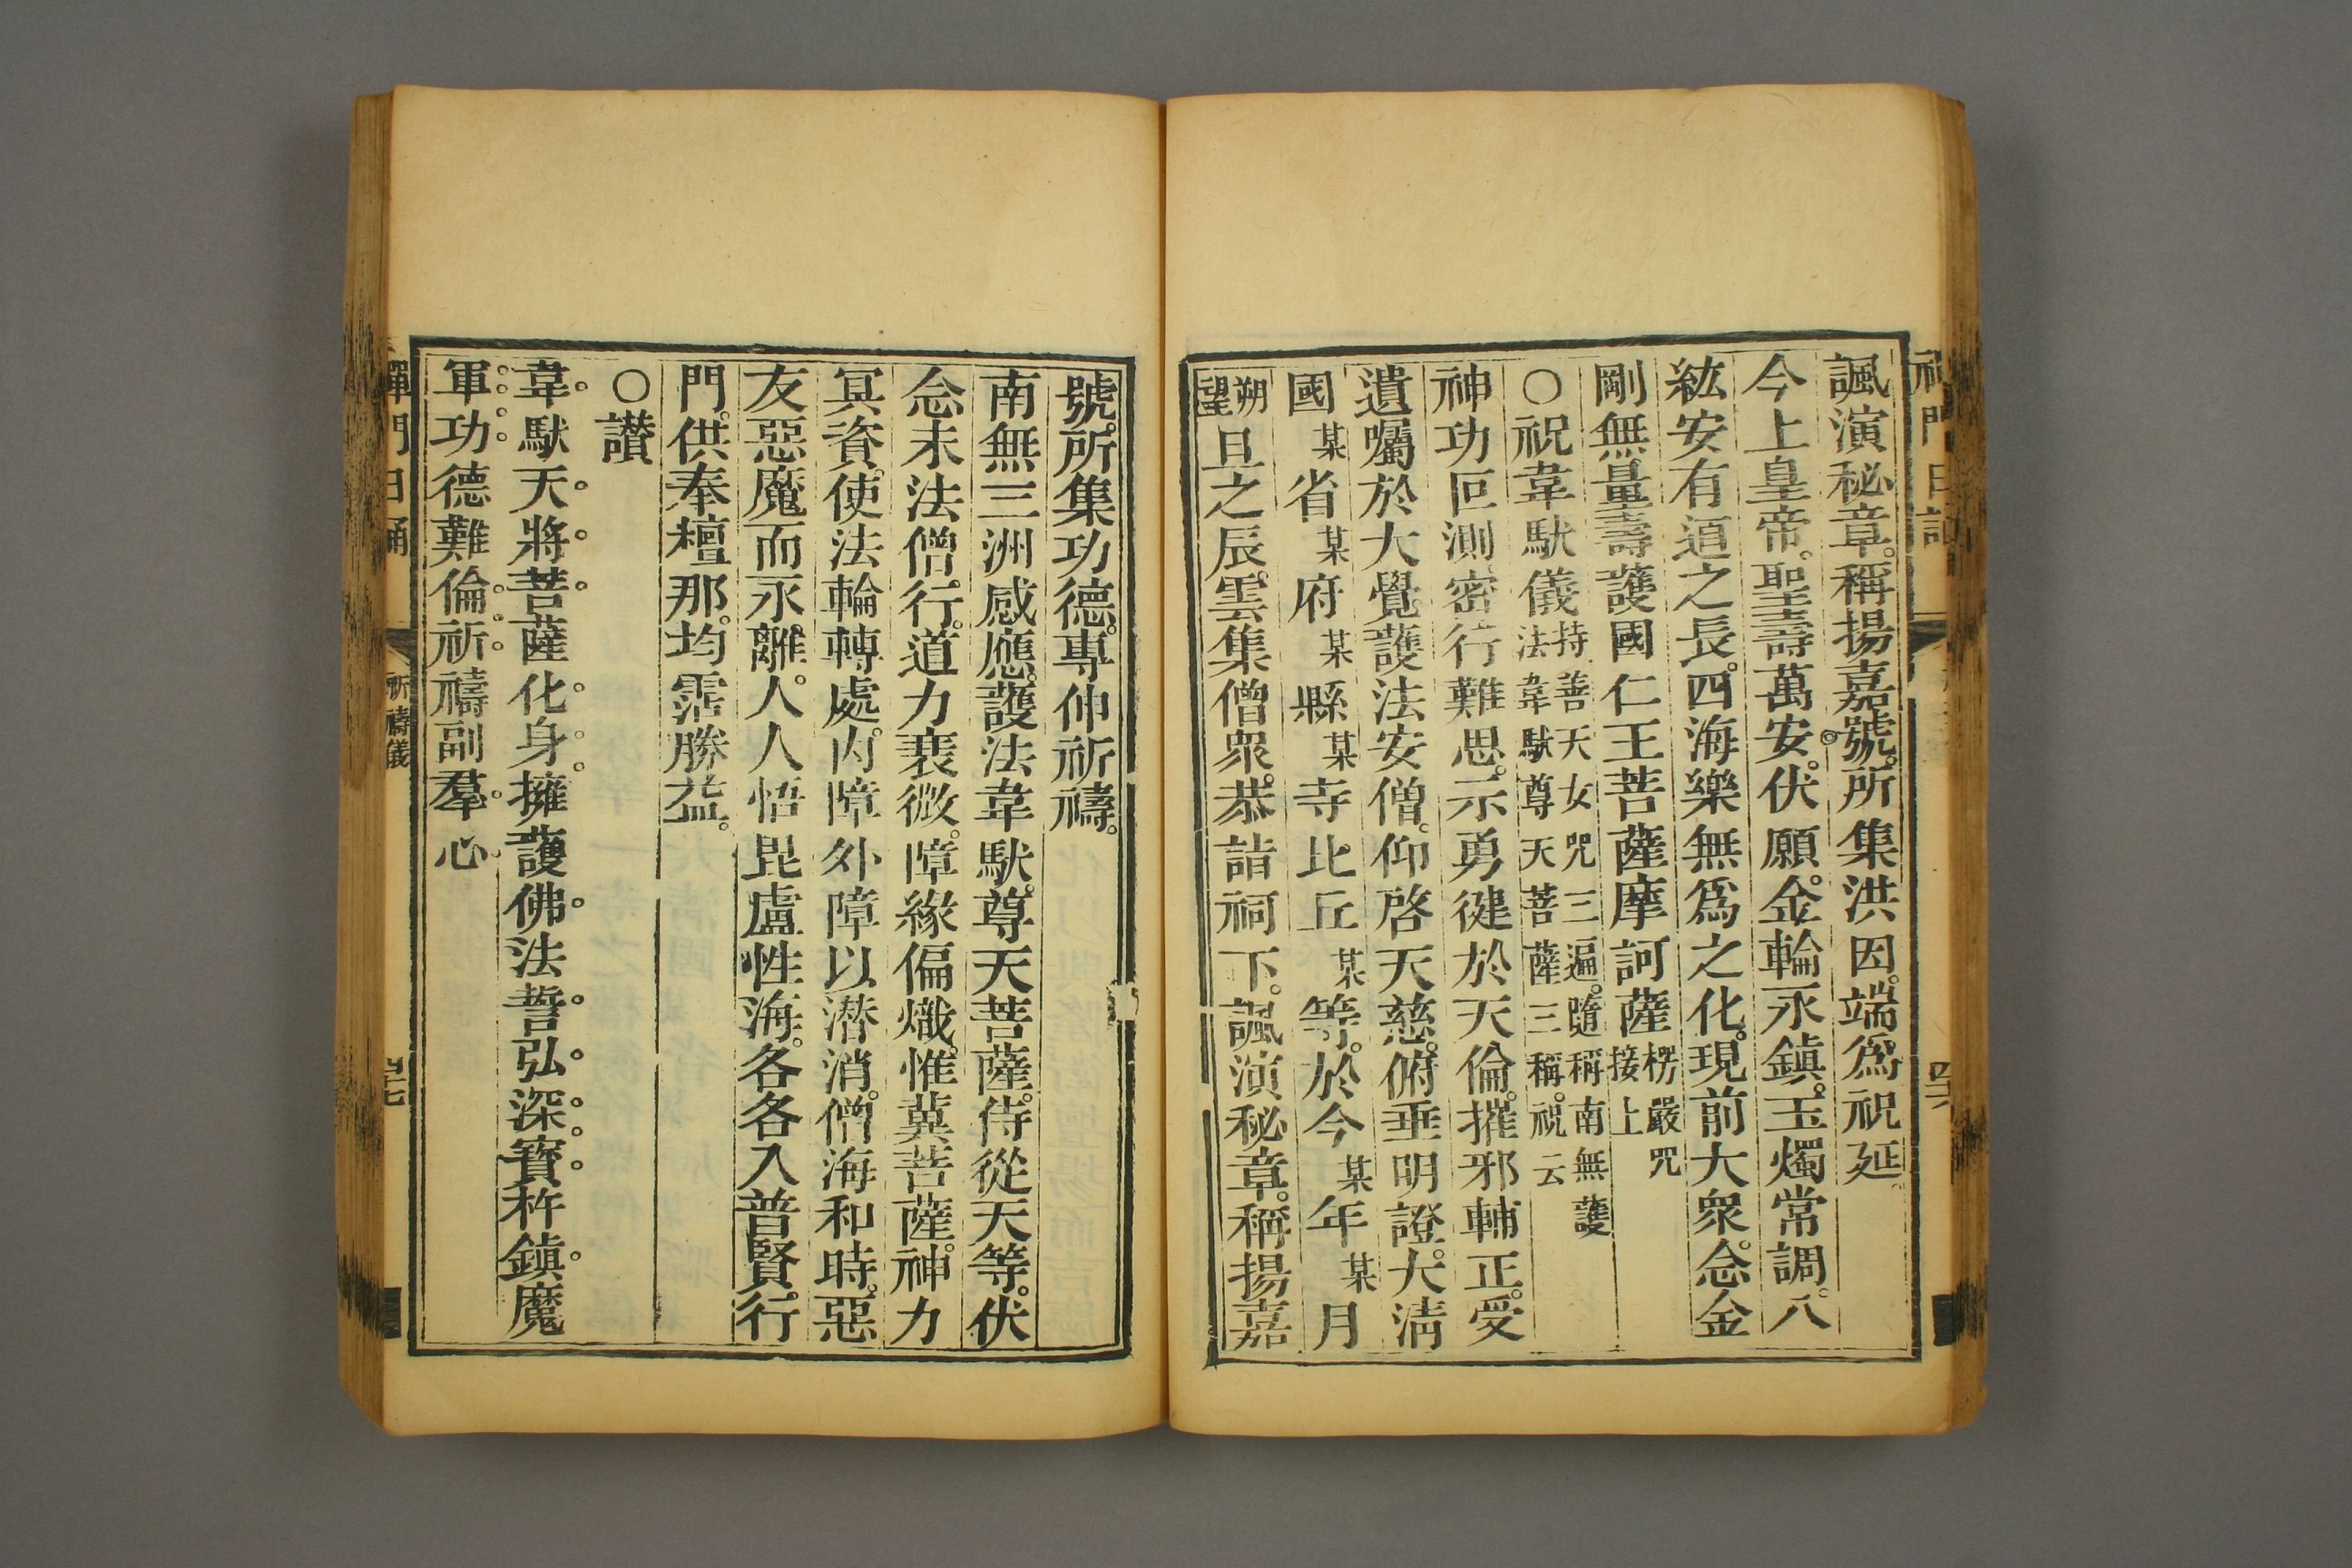 諷演秘章。稱揚嘉號。所集洪因。端爲祝延。
今上皇帝。聖壽萬安。伏願。金輪永鎮。玉燭常調。八
紘安有道之長。四海樂無爲之化。現前大衆。念金
剛無量壽護國仁王菩薩摩訶薩 楞嚴咒接上
○祝韋馱儀 持善天女咒三遍。隨稱南無護法韋馱尊天菩薩三稱。祝云
神功叵測。密行難思。示勇徤於天倫。摧邪輔正。受
遺囑於大覺。護法安僧。仰啓天慈。俯垂明證。大清
國某省某府某縣某寺比丘某等。於今某年某月
朔望旦之辰。雲集僧衆。恭詣祠下。諷演秘章。稱揚嘉
號。所集功德。專伸祈禱。
南無三洲感應。護法韋馱。尊天菩薩。侍從天等。伏
念末法僧行。道力衰微。障緣偏熾。惟冀菩薩。神力
冥資。使法輪轉處。内障外障以潜消。僧海和時。惡
友惡魔而永離。人人悟毘盧性海。各各入普賢行
門。供奉檀那。均霑勝益。
○讚
韋馱天將菩薩化身擁護佛法誓弘深寶杵鎮魔
軍功德難倫祈禱副羣心
禪門日誦
祈禱儀
四七